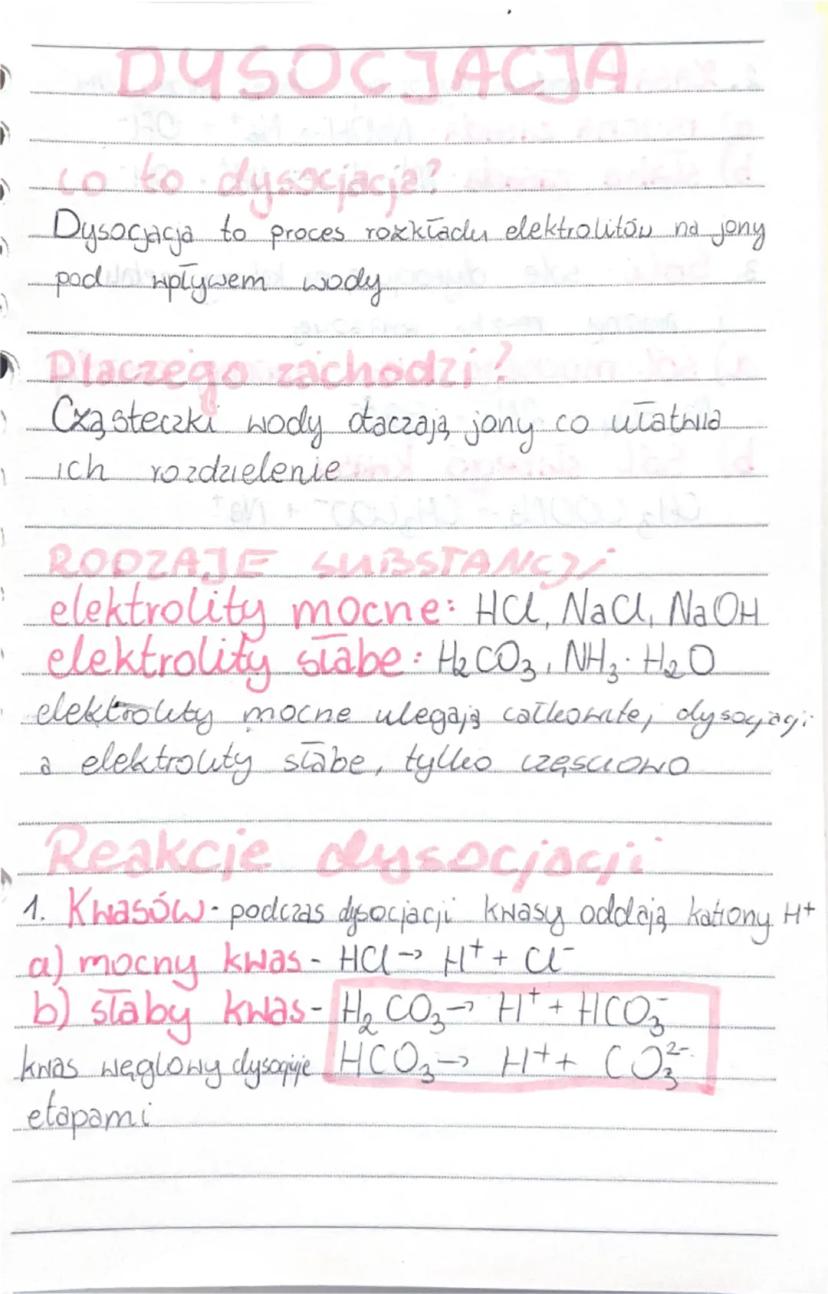 DYSOCJACJA
co to dysocjacja?
Dysocjacja to proces rozkładu elektrolitów na jony
pod wpływem wody
Dlaczego zachodzi?
Cząsteczki wody otaczają jony co ułatwia
ich rozdzielenie
RODZAJE SUBSTANCJI
elektrolity mocne: HCl, NaCl, NaOH
elektrolity słabe: H₂CO₃, NH₃·H₂O
elektrolity mocne ulegają całkowite, dysocjacji
a elektrolity słabe, tylko częściowo
Reakcje dysocjacji
1. Kwasów - podczas dysocjacji kwasy oddają kationy H⁺
a) mocny kwas - HCl → H⁺ + Cl⁻
b) słaby kwas - H₂CO₃ → H⁺ + HCO₃⁻
kwas węglowy dysocjuje HCO₃ → H⁺ + CO₃²⁻
etapami